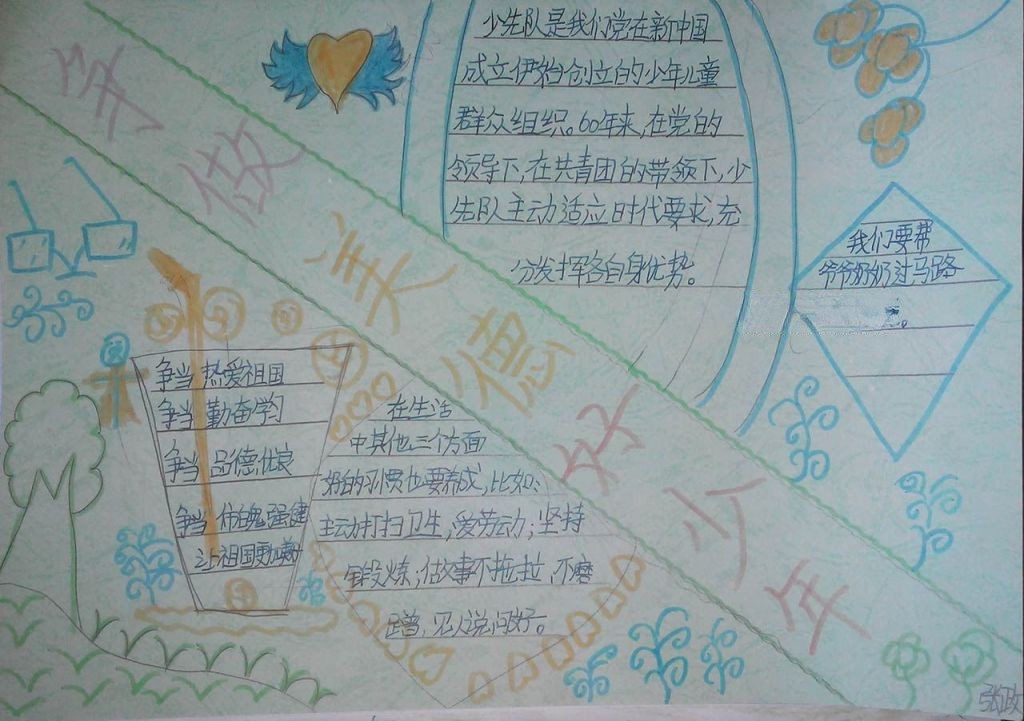 争做美德好少年
少先队是我们党在新中国
成立伊始创立的少年儿童
群众组织。60年来,在党的
领导下,在共青团的带领下,少
先队主动适应时代要求,充
分发挥各自身优势。
我们要帮
爷爷奶奶过马路
。
争当 热爱祖国
争当 勤奋学习
争当 品德优良
争当 体魄强健
让祖国更
在生活
中其他三个方面
的习惯也要养成,比如:
主动打扫卫生,爱劳动;坚持
锻炼;做事不拖拉,不磨
蹭,见人说问好。
张政